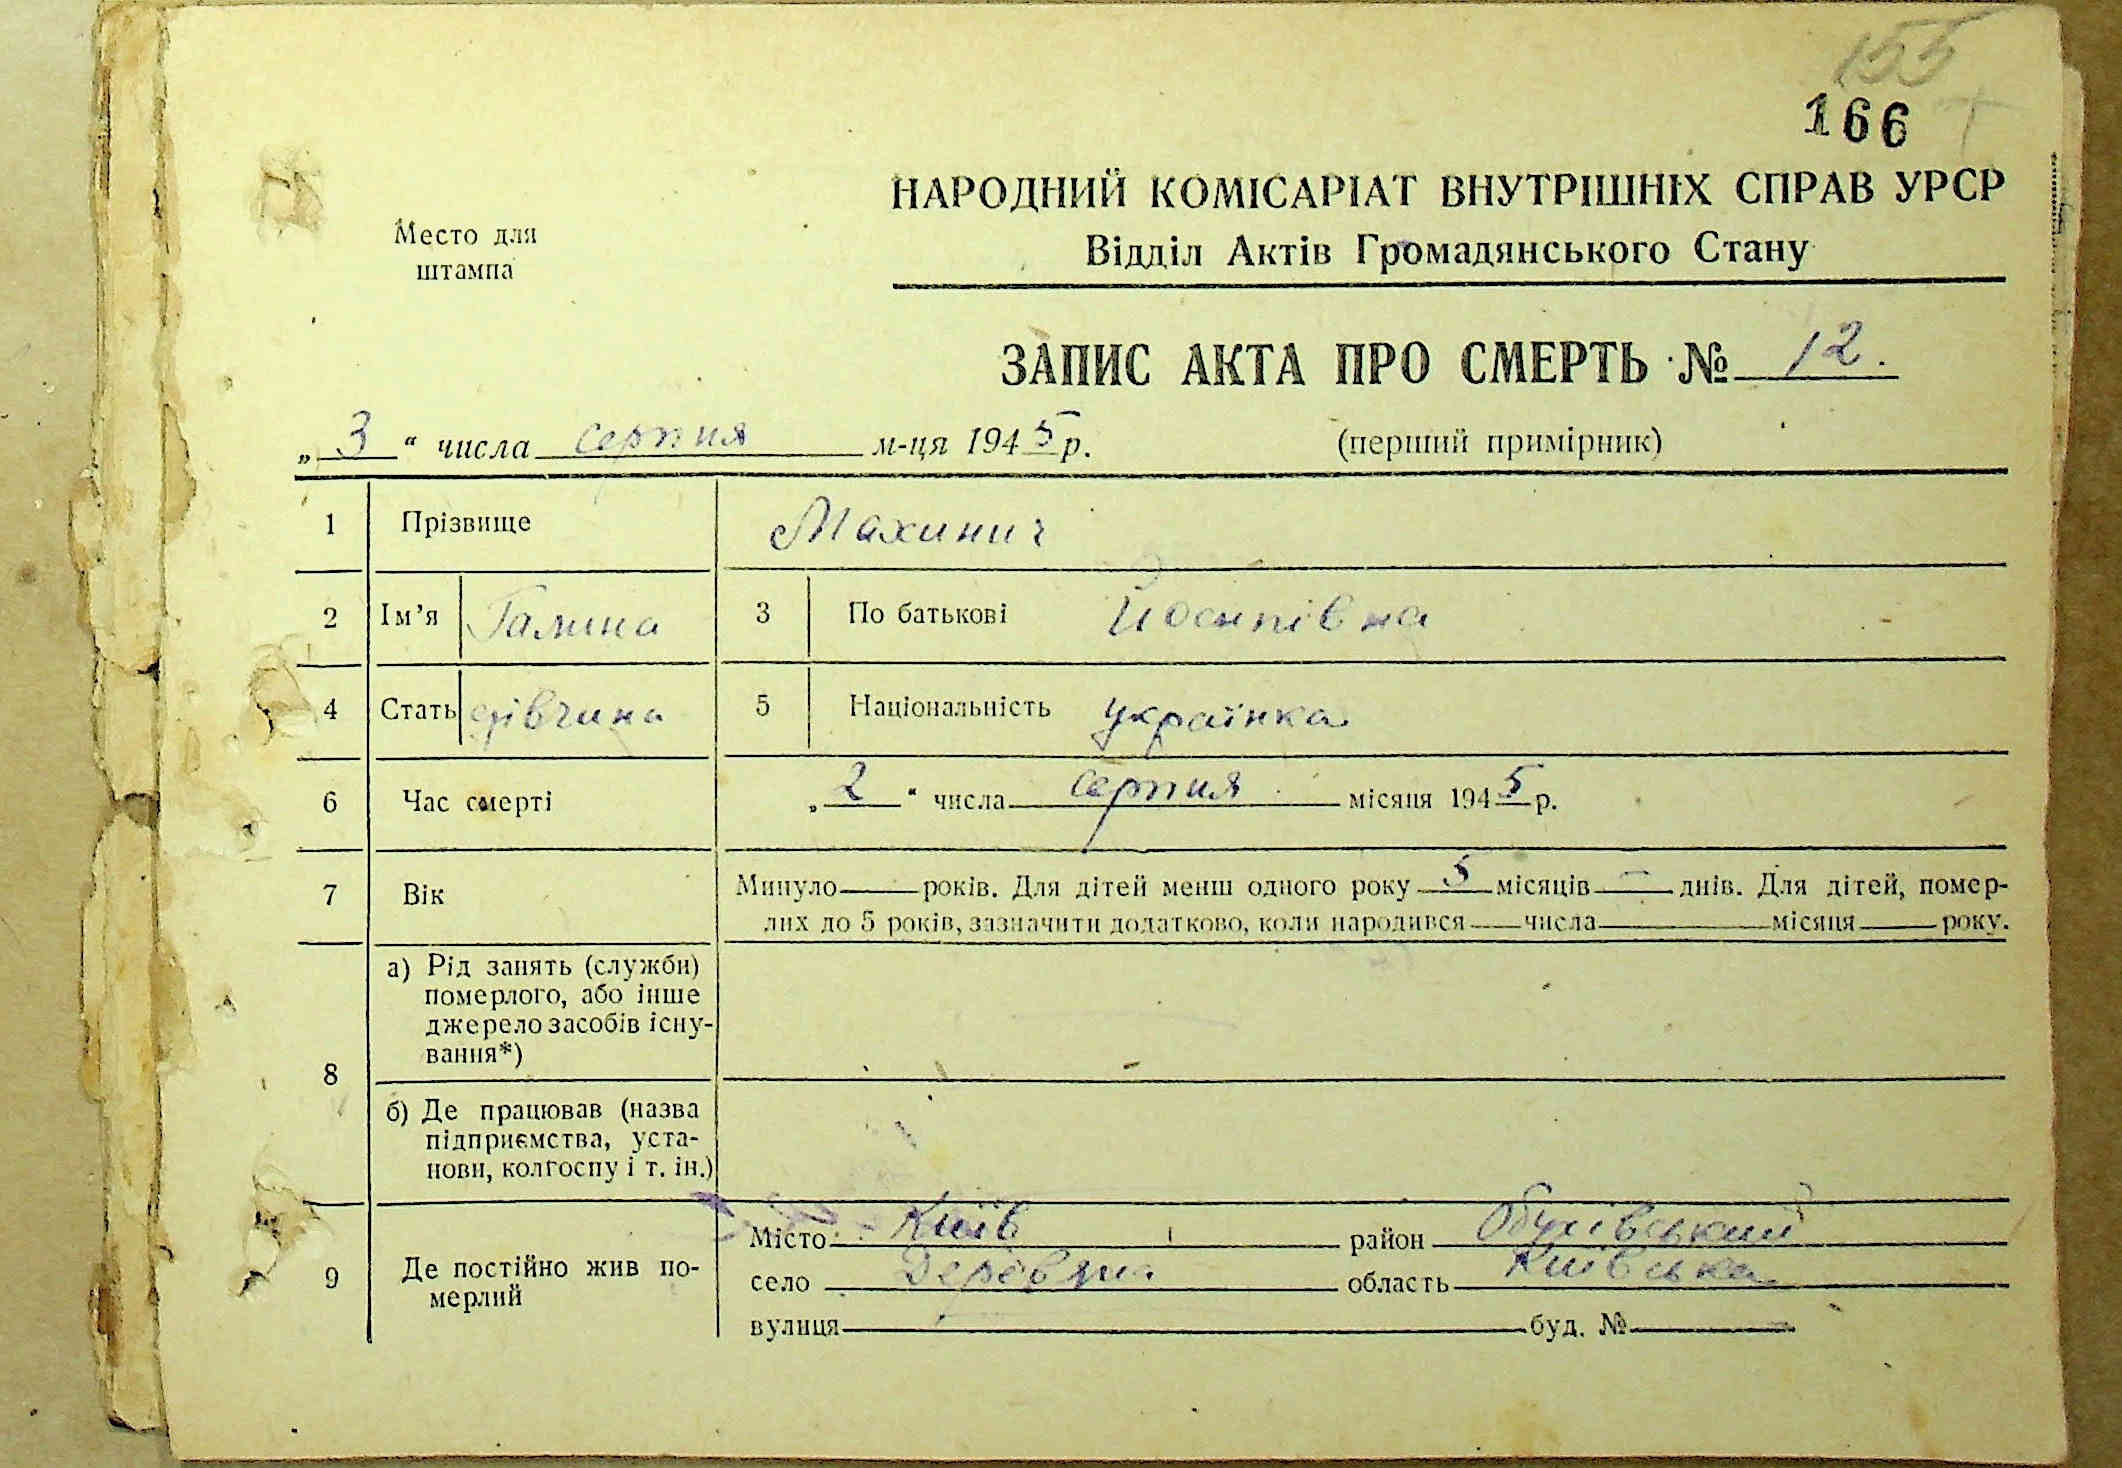 155
166
НАРОДНИЙ КОМІСАРІАТ ВНУТРІШНІХ СПРАВ УРСР
Место для штампа
Відділ Актів Громадянського Стану
ЗАПИС АКТА ПРО СМЕРТЬ № 12.
„3“ числа серпня м-ця 1945 р. (перший примірник)
1 Прізвище Махинич
2 Ім’я Галина 3 По батькові Йосипівна
4 Стать дівчина 5 Національність українка
6 Час смерті „2“ числа серпня місяця 1945 р.
7 Вік Минуло — років. Для дітей менш одного року 5 місяців — днів. Для дітей, помер-
лих до 5 років, зазначити додатково, коли народився — числа — місяця — року.
8 а) Рід занять (служби)
померлого, або інше
джерело засобів існу-
вання*)
б) Де працював (назва
підприємства, уста-
нови, колгоспу і т. ін.)
9 Де постійно жив по-
мерлий
Місто Київ район Обухівський
село Деревяна область Київська
вулиця буд. №